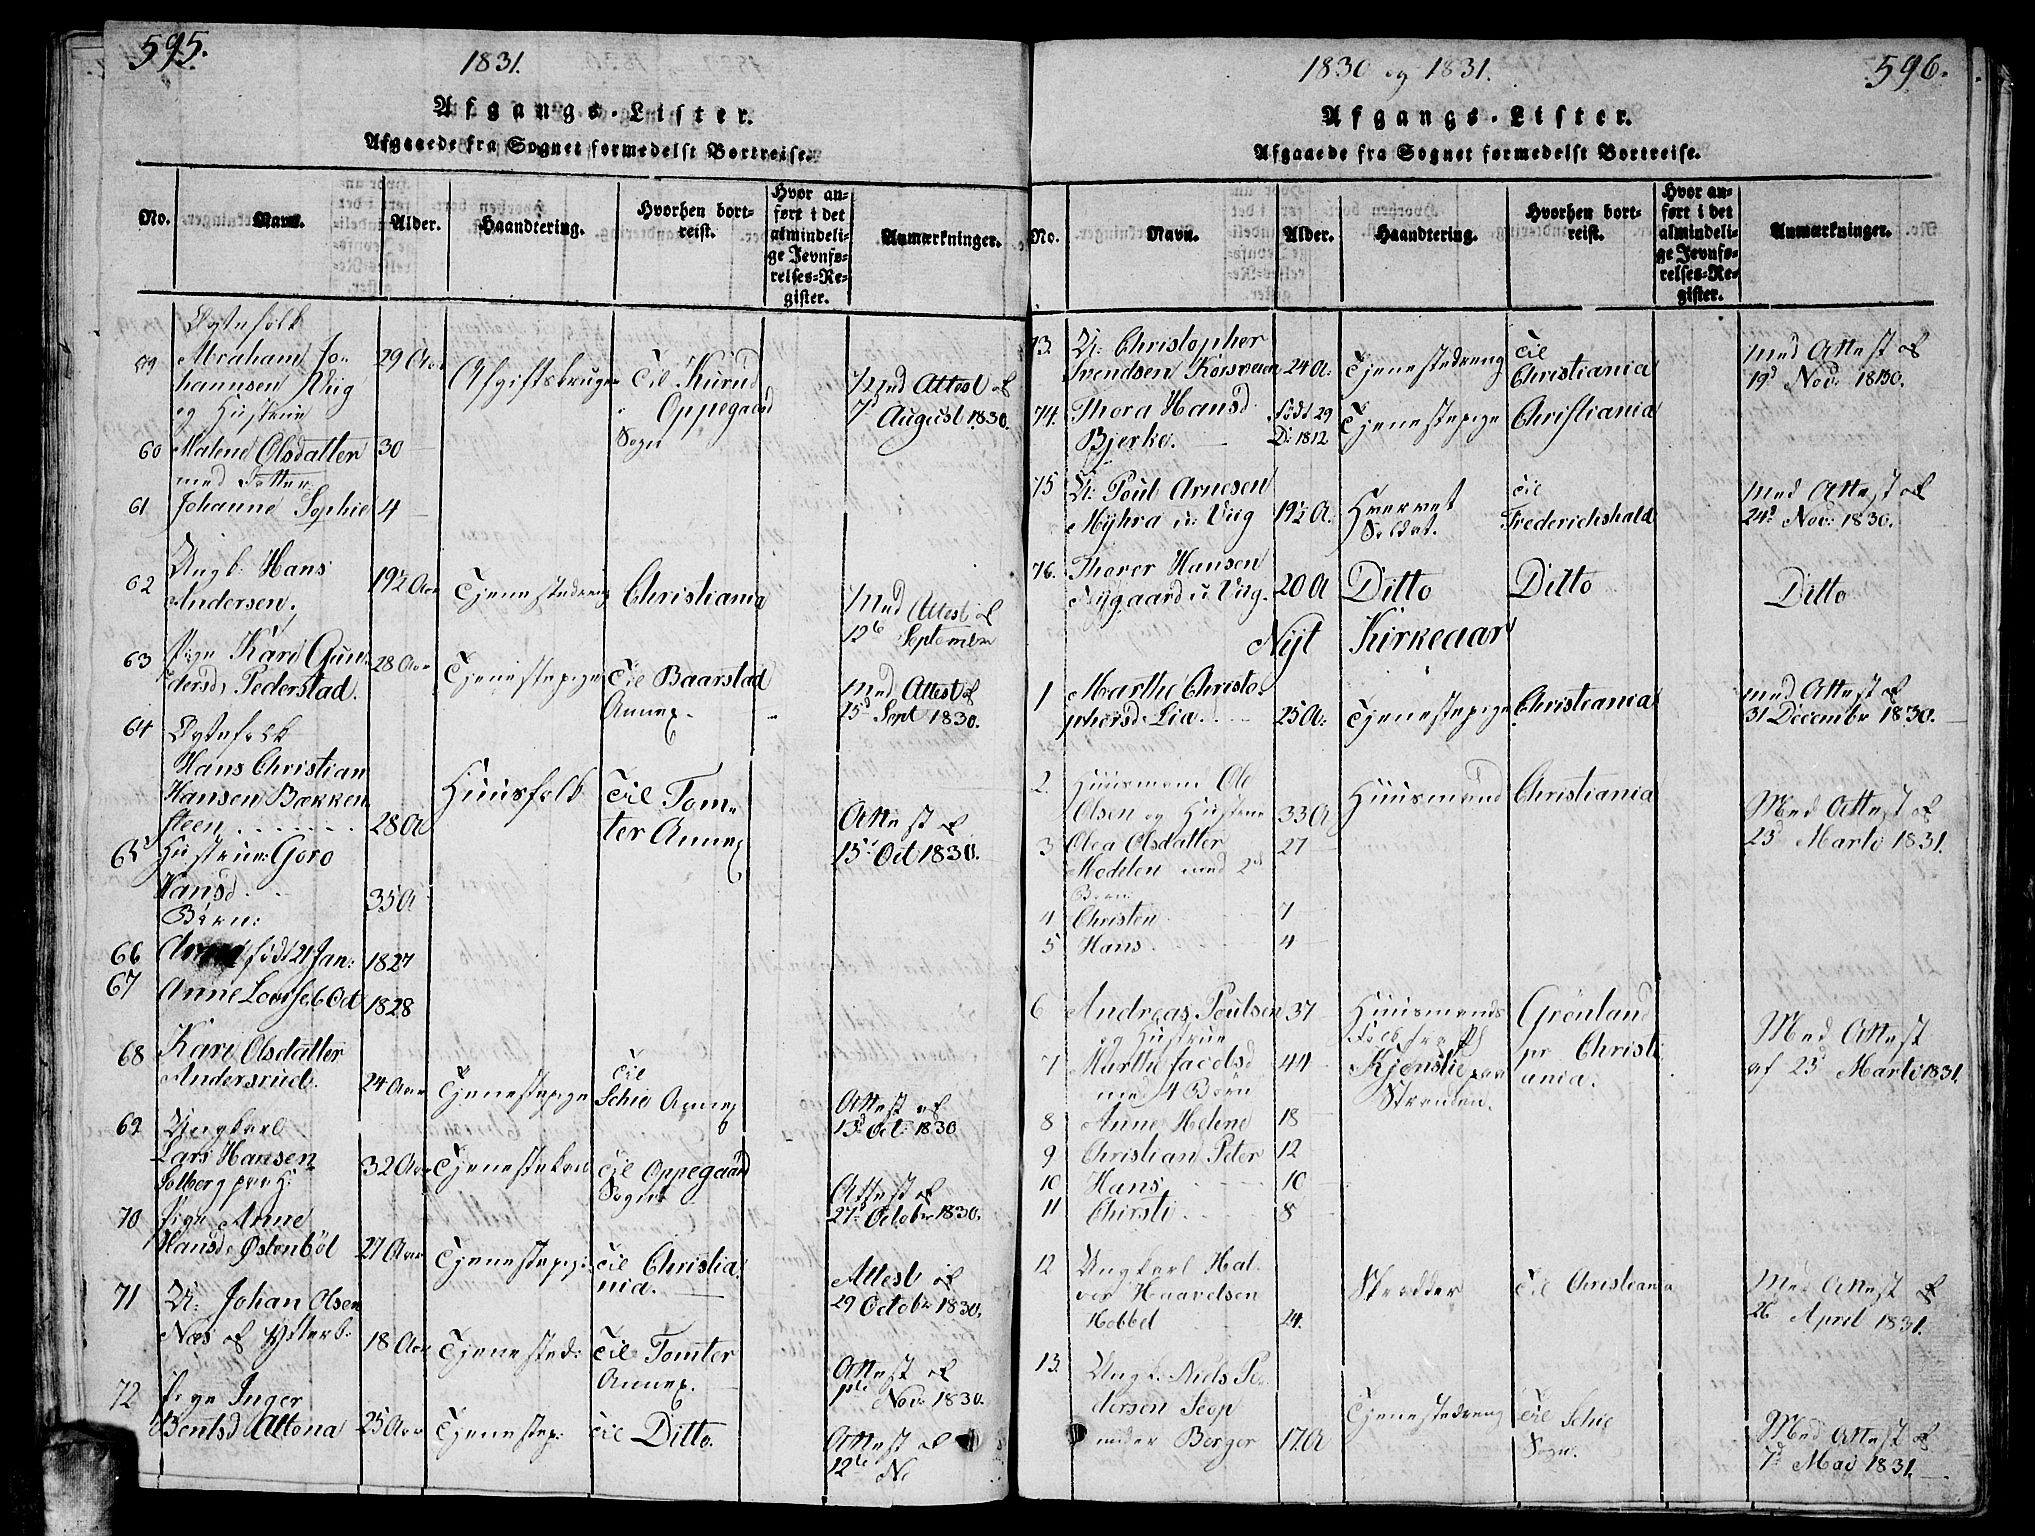 595.
1831.
Afgangs-Lister.
Afgaaede fra Sognet formedelst Bortreise.
No.
Navn.
Alder.
Haandtering.
Hvorhen bort-
reist.
Hvor an-
ført i det
almindeli-
ge Jevnfø-
relses-Re-
gister.
Anmærkninger.
Ægtefolk
Abraham Jo-
hannsen Wiig
og Hustrue
29 Aar
Afgiftsbruger
til Kurud
Oppegaard
Sogn
Med Attest af
7 August 1830.
60 Malene Olsdatter 30
med Datter
61 Johanne Sophie 4
62 Ungk: Hans
Andersen,
19½ Aar
Tjenestedreng
Christiania
Med Attest af
12 September
63 Pige Kari Gun-
dersd. Pederstad.
28 Aar
Tjenestepige
til Baarstad
Annex.
Med Attest af
15d Sept 1830.
64 Ægtefolk
Hans Christian
Hansen Bækken
steen
28 A
Huusfolk
til Tom-
ter Annex
Attest af
15d Oct 1830.
65 Hustrue: Goro
Hansd.
35 A
Børn:
66 født 21 Jan: 1827
67 Anne Lovise 6 Oct 1828
68 Kari Olsdatter
Andersrud.
24 Aar
Tjenestepige
til
Schie Annex
Attest af
13d Oct: 1830
69 Ungkarl
Lars Hansen
Solberg
32 Aar
Tjenestekarl
til Oppegaard
Sogn
Attest af
27d October 1830.
70 Pige Anne
Hansd. Østenbøl
27 Aar
Tjenestepige
til Christia-
nia.
Attest af
29 October 1830.
71 U: Johan Olsen
Næs af
18 Aar
Tjenested:
til Tomter
Annex.
Attest af
Nov: 1830.
72 Pige Inger
Bentsd Altona
25 Aar
Tjenestep:
til Ditto.
Attest af
12te N
596.
1830 og 1831.
Afgangs-Lister.
Afgaaede fra Sognet formedelst Bortreise.
No.
Navn.
Alder.
Haandtering.
Hvorhen bort-
reist.
Hvor an-
ført i det
almindeli-
ge Jevnfø-
relses-Re-
gister.
Anmærkninger.
73. U: Christopher
Svendsen Korsveien
24 A:
Tjenestedreng
til
Christiania
Med Attest af
19d Nov: 1830.
74. Thora Hansd
Bjerke.
Født 29
D: 1812
Tjenestepige
Christiania
75 U: Poul Arnesen
Myhra u: Viig
19½ A.
Hvervet
Soldat.
til
Frederichshald
Med Attest af
24d Nov: 1830.
76. Thorer Hansen
Nygaard u: Viig.
20 A
Ditto
Ditto
Ditto
Nyt Kirkeaar
1 Marthe Christo-
phersd. Lia.
25 A:
Tjenestepige
Christiania
med Attest af
31 December 1830.
2. Huusmand Ole
Olsen og Hustrue
33 A
Huusmand
Christiania
Med Attest af
23d Marti 1831.
3 Olea Olsdatter 27
med 2
Børn
4 Christen 7
5 Hans. 4
6 Andreas Poulsen 37
og Hustrue
Huusmands
Folk fra
Kjenslie paa
Stranden.
Grønland
pr Christi
ania.
Med Attest
af 23d Marti 1831.
7 Marthe Jacobsd 44
med 4 Børn
8 Anne Helene 18
9 Christian Peter 12
10 Hans 10
11 Chirsti 8
12 Ungkarl Hal-
vor Haavelsen
Hebbel
24.
Skrædder
til Christiania
Med Attest af
26 April 1831.
13. Ungk. Niels Pe-
dersen Seop
under Berger
17 A
Tjenestedreng
til Schie
Sogn.
Med Attest af
7d Mai 1831.